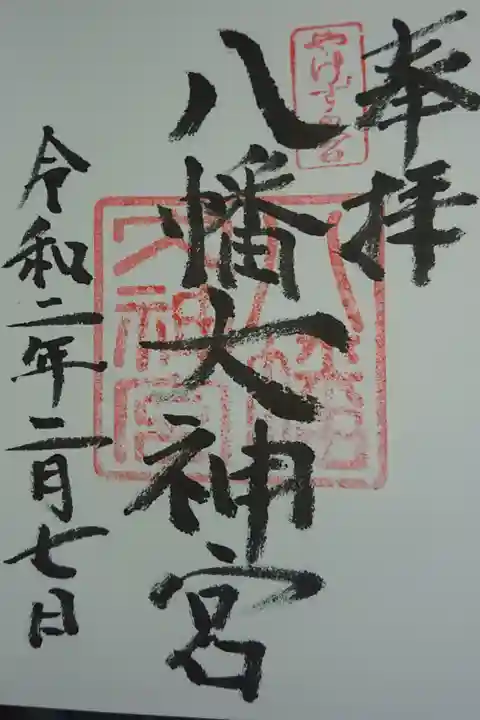 奉拝
八幡大神宮
令和二年二月七日
八幡
大神宮